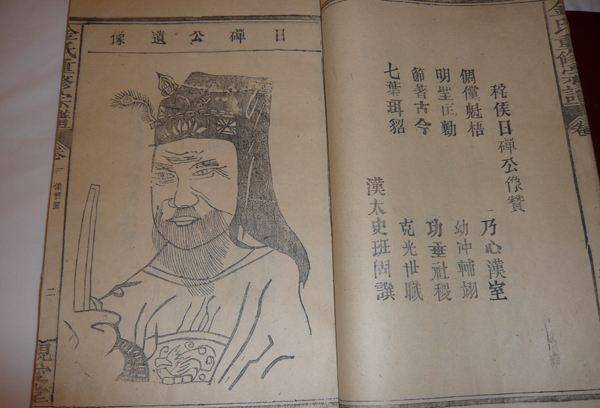 金氏重修宗譜
卷
秺侯日磾公像贊
倜儻魁梧 乃心漢室
明聖匡勷 幼冲輔翊
節著古今 功垂社稷
七葉珥貂 克光世職
漢太史班固譔
日磾公遺像
金氏重修宗譜
卷
二